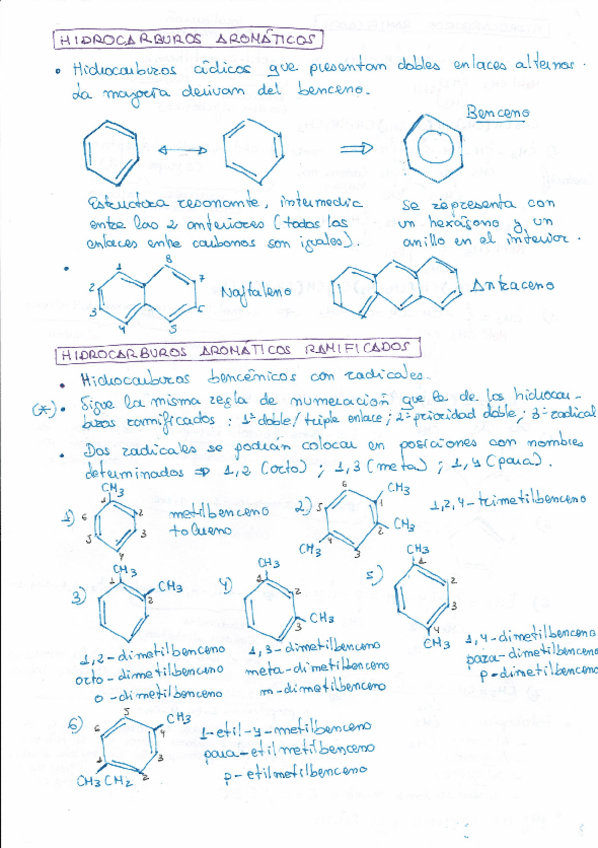 HIDROCARBUROS AROMÁTICOS
• Hidrocarburos cíclicos que presentan dobles enlaces alternos.
La mayoría derivan del benceno.
Benceno
Estructura resonante, intermedia
entre las 2 anteriores (todos los
enlaces entre carbonos son iguales).
se representa con
un hexágono y un
anillo en el interior.
•
1
2
3
4
5
6
7
8
Naftaleno
Antraceno
HIDROCARBUROS AROMÁTICOS RAMIFICADOS
• Hidrocarburos bencénicos con radicales.
(*) • Sigue la misma regla de numeración que la de los hidrocar-
buros ramificados : 1º doble/triple enlace ; 2º prioridad doble ; 3º radical
• Dos radicales se podrán colocar en posiciones con nombres
determinados ⇒ 1,2 (orto) ; 1,3 (meta) ; 1,4 (para).
1)
CH3
1
2
3
4
5
6
metilbenceno
tolueno
2)
6
5
CH3
1
2
CH3
3
4
CH3
1,2,4-trimetilbenceno
3)
CH3
1
2
CH3
1,2-dimetilbenceno
orto-dimetilbenceno
o-dimetilbenceno
4)
CH3
1
2
3
CH3
1,3-dimetilbenceno
meta-dimetilbenceno
m-dimetilbenceno
5)
CH3
1
2
3
4
CH3
1,4-dimetilbenceno
para-dimetilbenceno
p-dimetilbenceno
6)
5
6
4
CH3
3
1
2
CH3CH2
1-etil-4-metilbenceno
para-etilmetilbenceno
p-etilmetilbenceno